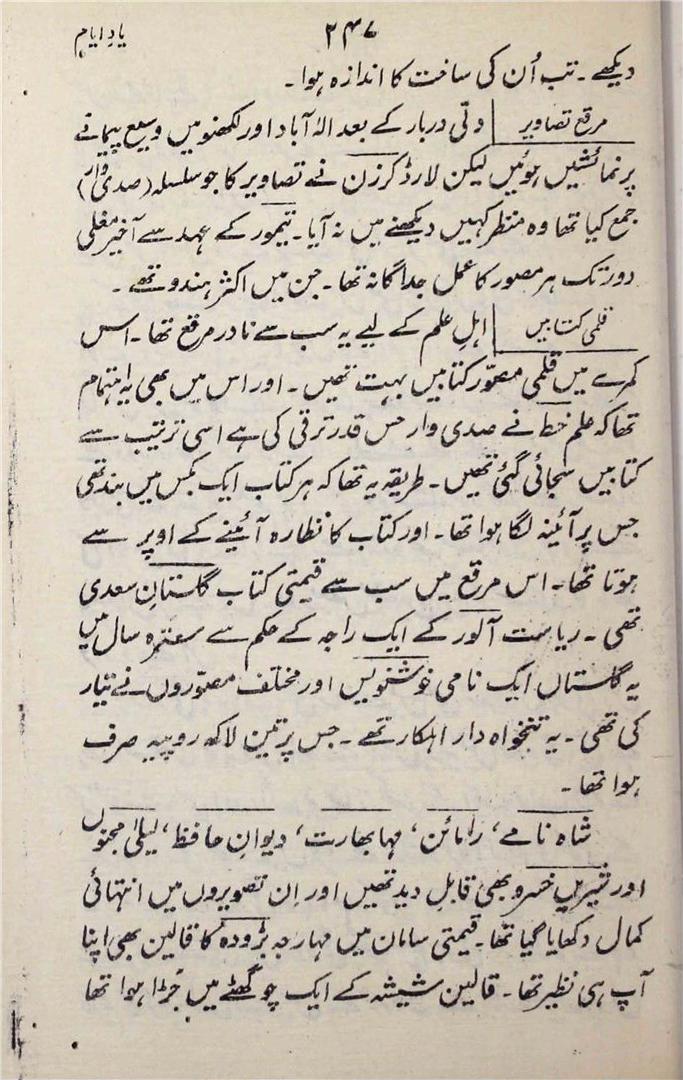 یادِ ایام
۲۴۷
دیکھے ۔ تب اُن کی ساخت کا اندازہ ہوا ۔
مرقع تصاویر | دلّی دربار کے بعد الہ آباد اور لکھنؤ میں وسیع پیمانے
پر نمائشیں ہوئیں لیکن لارڈ کرزن نے تصاویر کا جو سلسلہ (صدی وار)
جمع کیا تھا وہ منظر کہیں دیکھنے میں نہ آیا ۔ تیمور کے عہد سے آخیر مغلی
دور تک ہر مصور کا عمل جداگانہ تھا ۔ جن میں اکثر ہندو تھے ۔
قلمی کتابیں | اہلِ علم کے لیے یہ سب سے نادر مرقع تھا ۔ اس
کمرے میں قلمی مصوّر کتابیں بہت تھیں ۔ اور اس میں بھی یہ اہتمام
تھا کہ علم خط نے صدی وار جس قدر ترقی کی ہے اسی ترتیب سے
کتابیں سجائی گئی تھیں ۔ طریقہ یہ تھا کہ ہر کتاب ایک بکس میں بند تھی
جس پر آئینہ لگا ہوا تھا ۔ اور کتاب کا نظارہ آئینے کے اوپر سے
ہوتا تھا ۔ اس مرقع میں سب سے قیمتی کتاب گلستانِ سعدی
تھی ۔ ریاست آلور کے ایک راجہ کے حکم سے سترہ سال میں
یہ گلستاں ایک نامی خوشنویس اور مختلف مصوّروں نے تیار
کی تھی ۔ یہ تنخواہ دار اہلکار تھے ۔ جس پر تین لاکھ روپیہ صرف
ہوا تھا ۔
شاہ نامے، رامائن، مہابھارت، دیوانِ حافظ، لیلیٰ مجنوں
اور شیریں خسرو بھی قابلِ دید تھیں اور اِن تصویروں میں انتہائی
کمال دکھایا گیا تھا ۔ قیمتی سامان میں مہارجہ بڑودہ کا قالین بھی اپنا
آپ ہی نظیر تھا ۔ قالین شیشہ کے ایک چوگھٹے میں جُڑا ہوا تھا